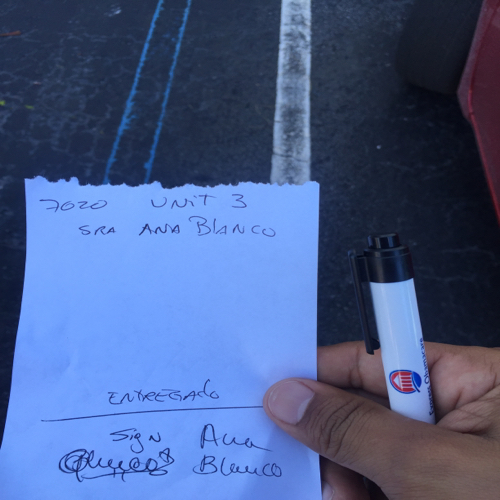 7020 UNIT 3
SRA ANA BLANCO
ENTREGADO
Sign Ana
Blanco